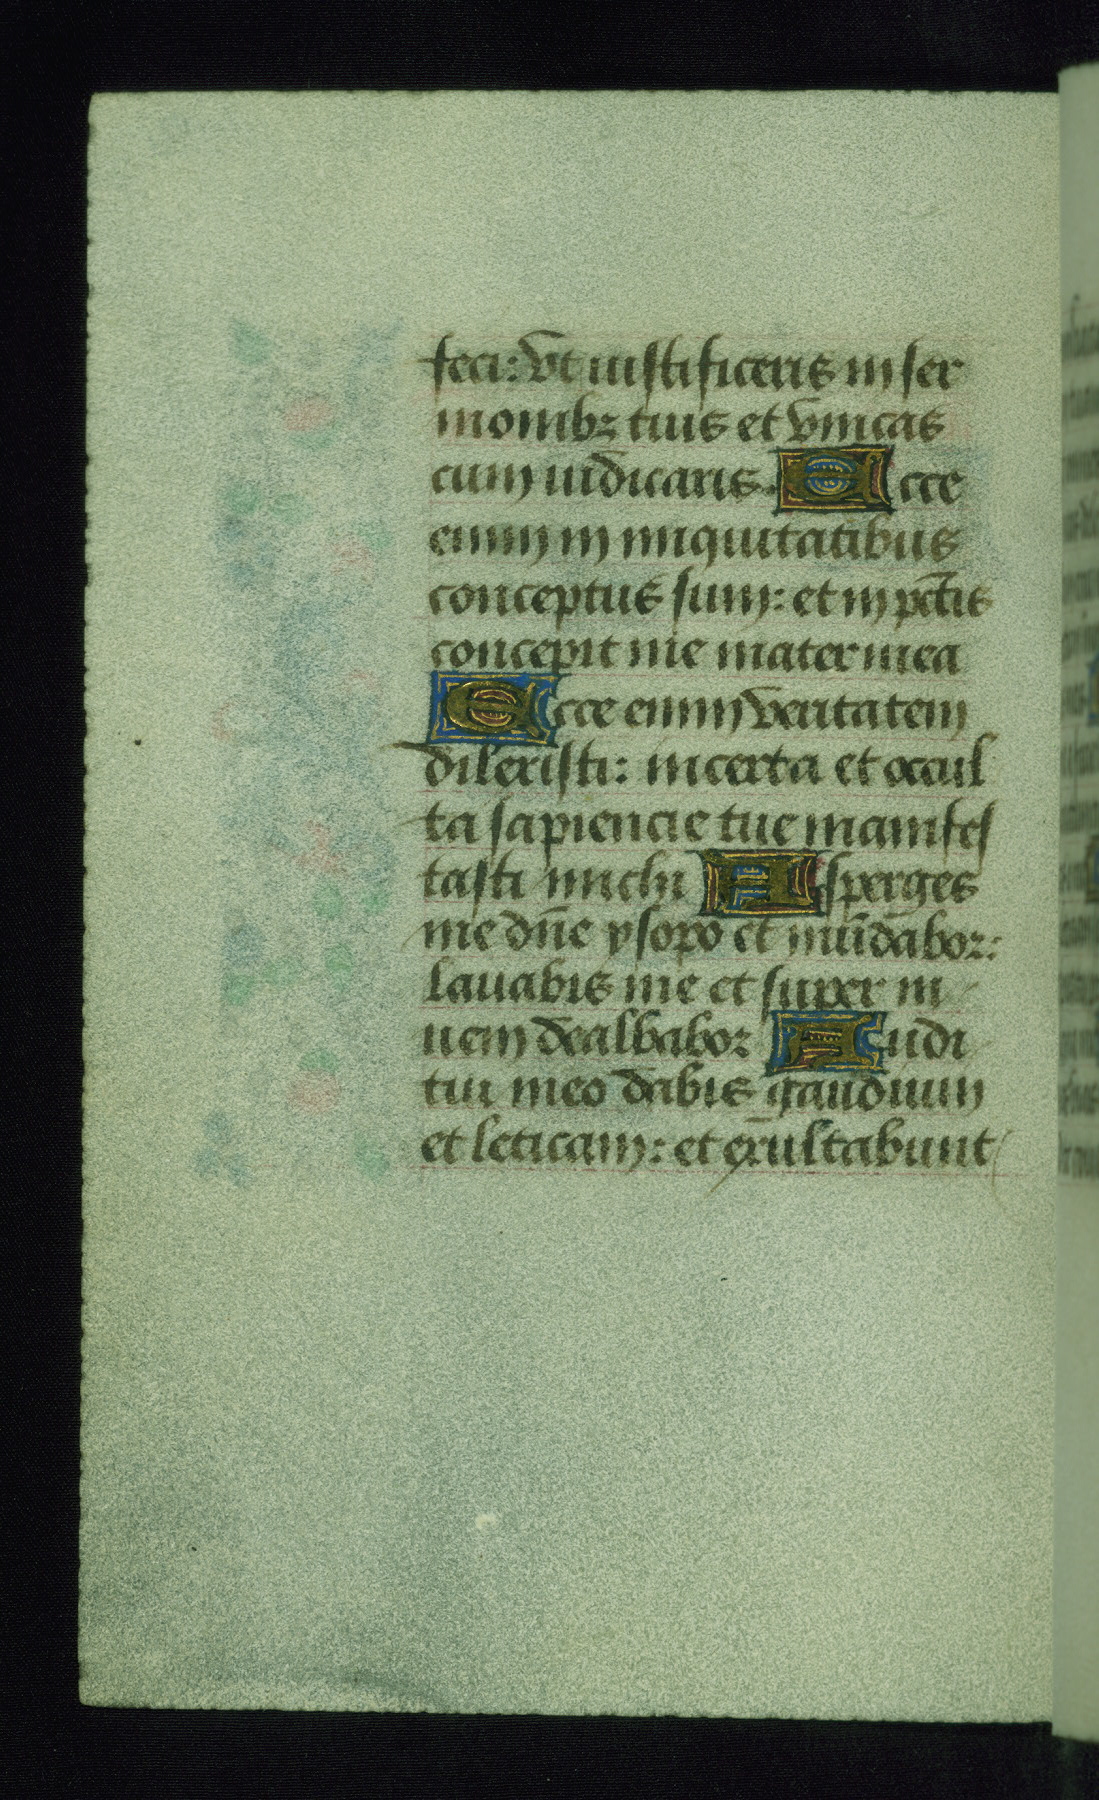 feci: vt iustificeris in ser
monibꝫ tuis et vincas
cum iudicaris. Ecce
enim in iniquitatibus
conceptus sum: et in pctīs
concepit me mater mea
Ecce enim veritatem
dilexisti: incerta et occul
ta sapiencie tue manifes
tasti michi Asperges
me dn̄e ysopo et mūdabor:
lauabis me et super ni
uem dealbabor Audi
tui meo dabis gaudium
et leticiam: et exultabunt